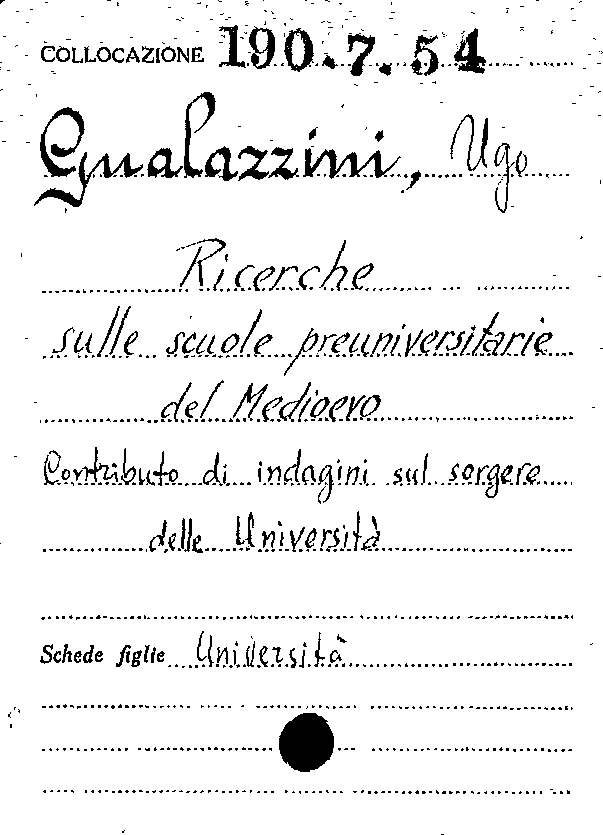 COLLOCAZIONE 190.7.54
Gualazzini, Ugo
Ricerche
sulle scuole preuniversitarie
del Medioevo
Contributo di indagini sul sorgere
delle Università
Schede figlie Università